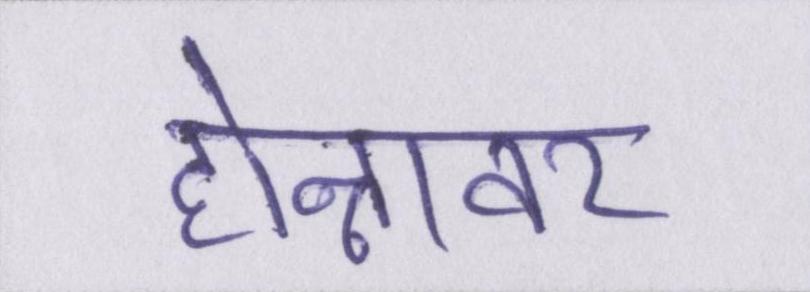 होन्नावर